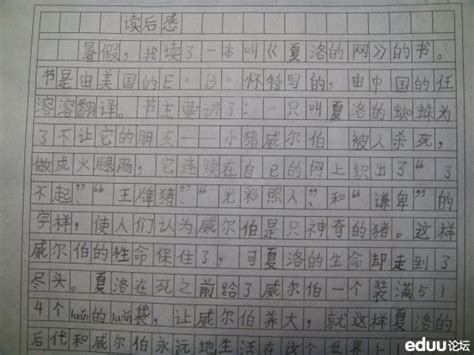 读后感
暑假，我读了一本叫《夏洛的网》的书。
书是由美国的E·B·怀特写的，由中国的任
溶溶翻译。书主要讲了：一只叫夏洛的蜘蛛为
了不让它的朋友——小猪威尔伯 被人杀死，
做成火腿肠，它连续在自己的网上织出了“了
不起”、“王牌猪”、“光彩照人”、和“谦卑”的
字样，使人们认为威尔伯是只神奇的猪。这样
威尔伯的性命保住了，可夏洛的生命却走到了
尽头。夏洛在死之前给了威尔伯一个装满51
4个luǎn的luǎn袋，让威尔伯养大，就这样夏洛的
后代和威尔伯永远地生活在这个世界上
eduu论坛